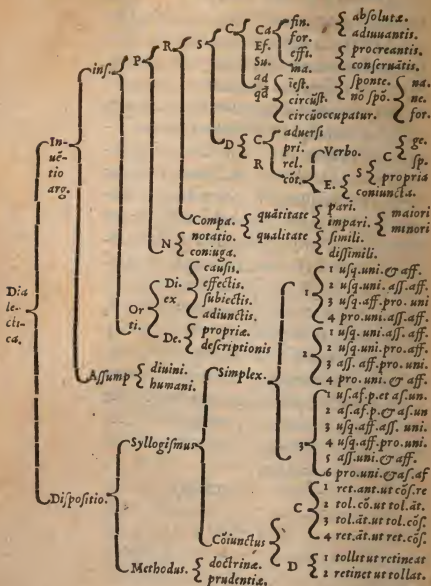 Dia
le-
cti-
ca.
In-
uē-
tio
arg.
inſ.
P
R
S
C
Ca
fin.
for.
effi.
ma.
abſolutæ.
adiuuantis.
procreantis.
conſeruātis.
Ef.
Su.
ad
qđ
ieſt.
circūſt.
circūoccupatur.
ſponte.
nō ſpō.
na.
ne.
for.
D
C
aduerſi
pri.
R
rel.
cōt.
Verbo.
E.
S
C
ge.
ſp.
propria
coniuncta.
Compa.
quātitate
pari.
impari.
maiori
minori
qualitate
ſimili.
diſſimili.
N
notatio.
coniuga.
Or
ti.
Di.
ex
cauſis.
effectis.
ſubiectis.
adiunctis.
De.
propriæ.
deſcriptionis
Aſſump
diuini.
humani.
Diſpoſitio.
Syllogiſmus
Simplex.
1
1 uſq.uni.& aff.
2 uſq.uni.aſſ.aff.
3 uſq.aff.pro.uni
4 pro.uni.aſſ.aff.
2
1 uſq.uni.aſſ.aff.
2 uſq.uni.pro.aff.
3 aſſ. aff.pro.uni
4 pro.uni.& aff.
3
1 uſ.af.p.et aſ.un.
2 aſ.af.p.& aſ.un
3 uſq.aff.aſſ. uni.
4 uſq.aff.pro.uni.
5 aſſ.uni.& aff.
6 pro.uni.& aſ.af
Cōiunctus
C
1 ret.ant.ut cōſ.re
2 tol.cō.ut tol.āt.
3 tol.āt.ut tol.cōſ.
4 ret.āt.ut ret.cōſ.
D
1 tollit ut retineat
2 retinet ut tollat.
Methodus.
doctrinæ.
prudentiæ.